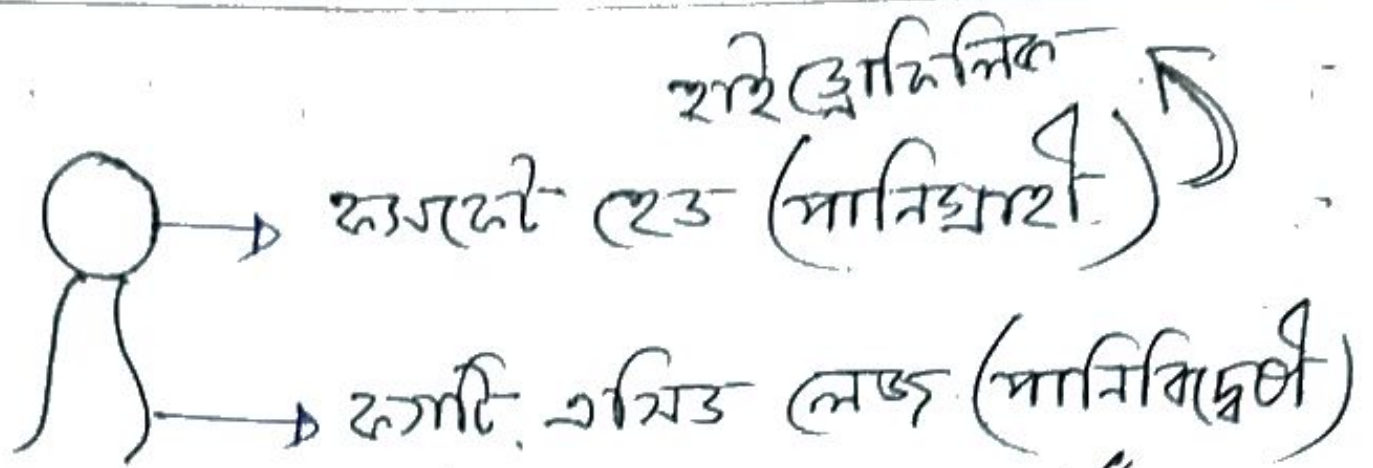 হাইড্রোফিলিক
ফসফেট হেড (পানিগ্রাহী)
ফ্যাটি এসিড লেজ (পানিবিদ্বেষী)